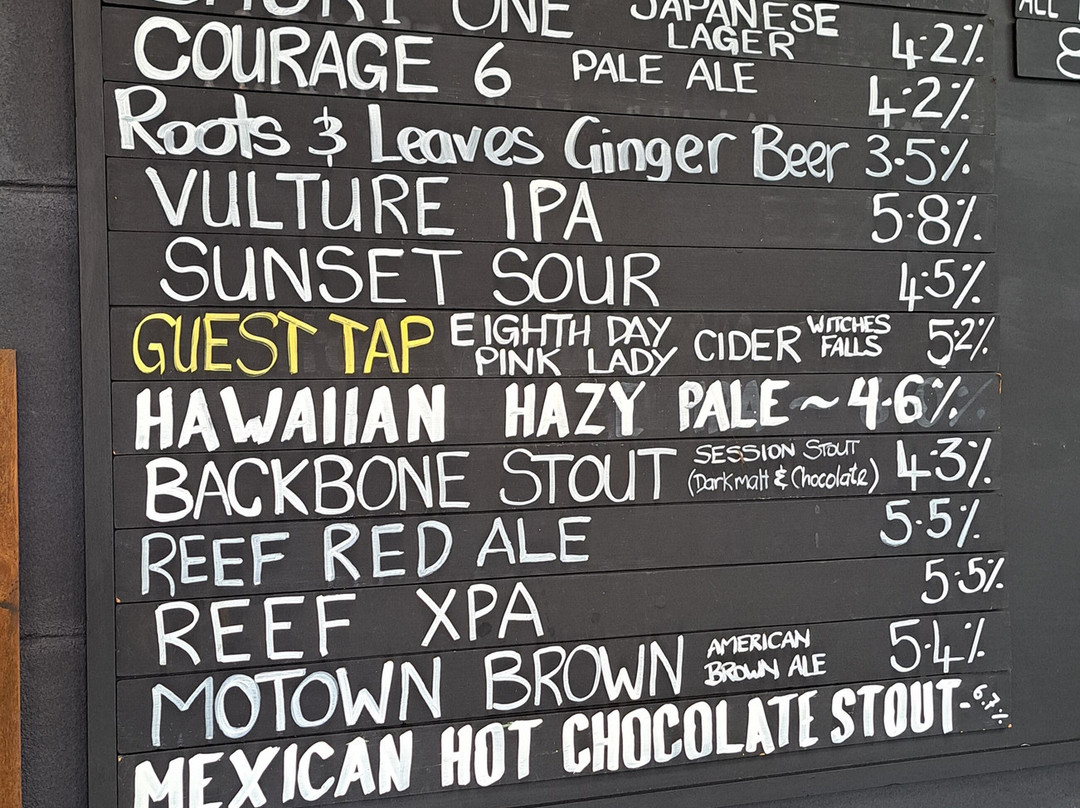 ONE JAPANESE LAGER 4.2%
COURAGE 6 PALE ALE 4.2%
Roots & Leaves Ginger Beer 3.5%
VULTURE IPA 5.8%
SUNSET SOUR 4.5%
GUEST TAP EIGHTH DAY PINK LADY CIDER WITCHES FALLS 5.2%
HAWAIIAN HAZY PALE ~ 4.6%
BACKBONE STOUT SESSION STOUT (Dark malt & Chocolate) 4.3%
REEF RED ALE 5.5%
REEF XPA 5.5%
MOTOWN BROWN AMERICAN BROWN ALE 5.4%
MEXICAN HOT CHOCOLATE STOUT - 6.7%
ALL